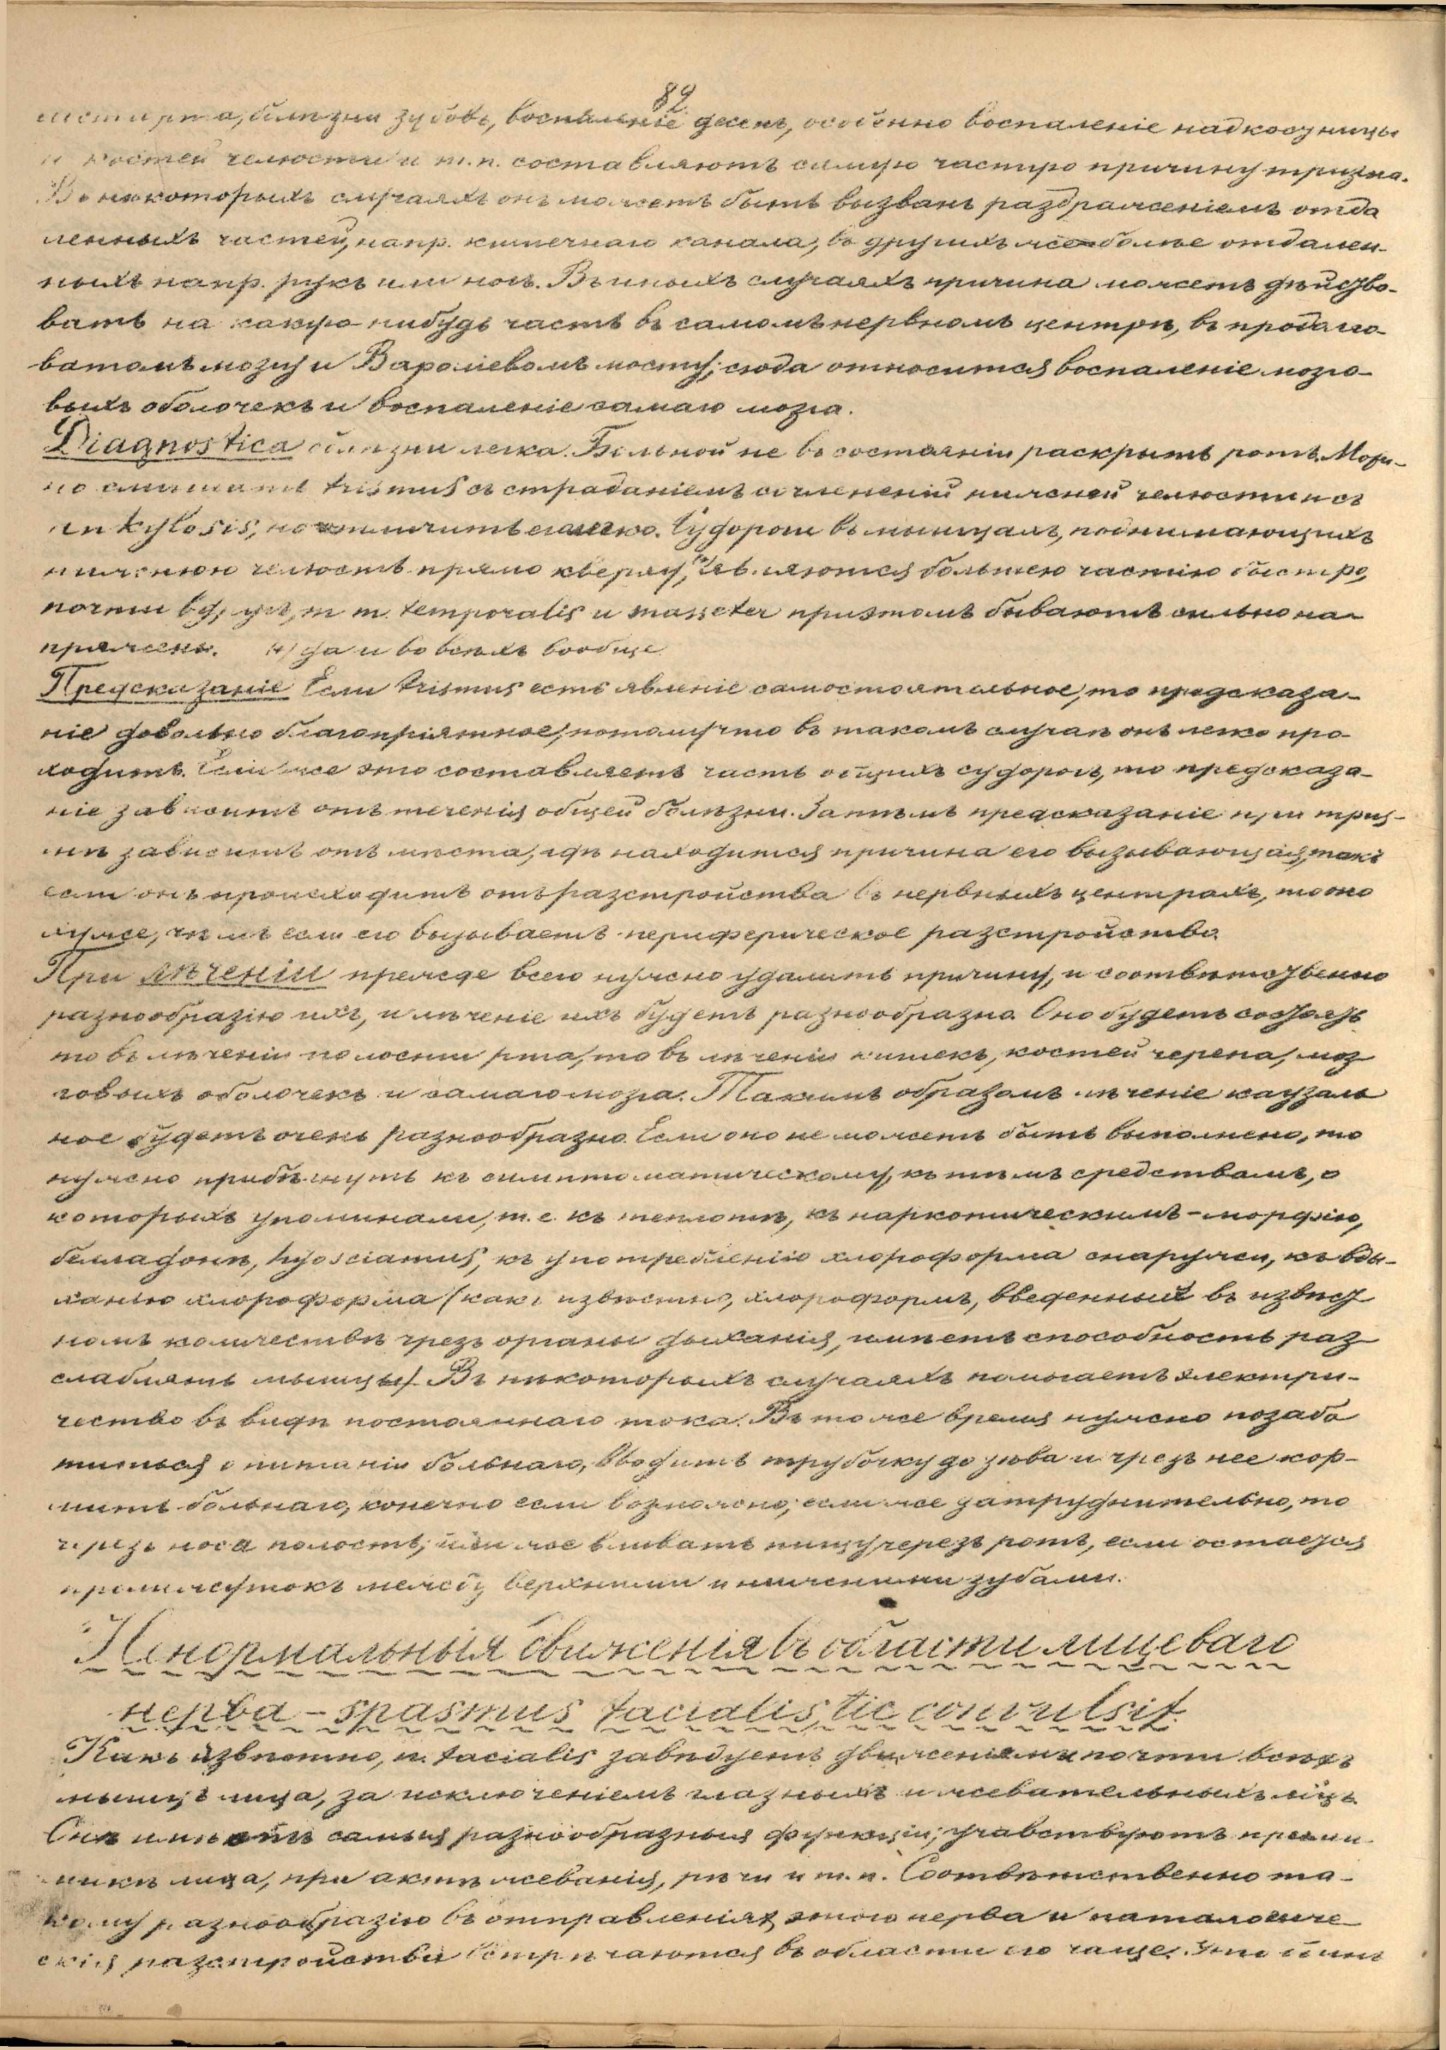 82
рта, болѣзни зубовъ, воспаленіе десенъ, особенно воспаленіе надкостницы
и костей челюсти и т.п. составляютъ самую частую причину тризма.
Въ нѣкоторыхъ случаяхъ онъ можетъ быть вызванъ раздраженіемъ отда
ленныхъ частей, напр. кишечнаго канала, въ другихъ же болѣе отдален-
ныхъ напр. рукъ или ногъ. Въ иныхъ случаяхъ причина можетъ дѣйство-
вать на какую нибудь часть въ самомъ нервномъ центрѣ, въ продолго-
ватомъ мозгу и Вароліевомъ мосту; сюда относится воспаленіе мозго-
выхъ оболочекъ и воспаленіе самаго мозга.
Diagnostica болѣзни легка. Больной не въ состояніи раскрыть ротъ. Мож-
но смѣшать trismus съ страданіемъ сочлененій нижней челюсти
ankylosis, но отличить его легко. Судороги въ мышцахъ, поднимающихъ
нижнюю челюсть прямо кверху, являются большею частію быстро,
почти вдругъ, m m. temporalis и masseter при этомъ бываютъ сильно на
пряжены. да и во всѣхъ вообще
Предсказаніе Если trismus есть явленіе самостоятельное, то предсказа-
ніе довольно благопріятное, потому что въ такомъ случаѣ онъ легко про-
ходитъ. Если же это составляетъ часть общихъ судорогъ, то предсказа-
ніе зависитъ отъ теченія общей болѣзни. Затѣмъ предсказаніе при триз-
мѣ зависитъ отъ мѣста, гдѣ находится причина его вызывающая, такъ
если онъ происходитъ отъ разстройства въ нервныхъ центрахъ, то оно
хуже, чѣмъ если его вызываетъ периферическое разстройство.
При лѣченіи прежде всего нужно удалить причину, и соотвѣтственно
разнообразію ихъ, и лѣченіе ихъ будетъ разнообразно. Оно будетъ состоять
то въ лѣченіи полости рта, то въ лѣченіи кишекъ, костей черепа, моз
говыхъ оболочекъ и самаго мозга. Такимъ образомъ лѣченіе каузаль
ное будетъ очень разнообразно. Если оно не можетъ быть выполнено, то
нужно прибѣгнуть къ симптоматическому, къ тѣмъ средствамъ, о
которыхъ упоминали, т.е. къ теплотѣ, къ наркотическимъ - морфію,
белладонѣ, hyosciamus, къ употребленію хлороформа снаружи, къ вды-
ханію хлороформа (какъ извѣстно, хлороформъ, введенный въ извѣст
номъ количествѣ чрезъ органы дыханія, имѣетъ способность раз
слаблять мышцы). Въ нѣкоторыхъ случаяхъ помогаетъ электри-
чество въ видѣ постояннаго тока. Въ то же время нужно позабо
титься о питаніи больнаго, вводить трубочку до зѣва и чрезъ нее кор-
мить больнаго, конечно если возможно; если же затруднительно, то
чрезъ носа полость; или же вливать пищу черезъ ротъ, если остается
промежутокъ между верхними и нижними зубами.
Ненормальныя движенія въ области лицеваго
нерва - spasmus facialis, tic convulsif.
Какъ извѣстно, n. facialis завѣдуетъ движеніями почти всѣхъ
мышцъ лица, за исключеніемъ глазныхъ и жевательныхъ мцъ.
самыя разнообразныя функціи; учавствуютъ при ми
микѣ лица, при актѣ жеванія, рѣчи и т.п. Соотвѣтственно та-
кому разнообразію въ отправленіяхъ этого нерва и патологиче-
скія разстройства встрѣчаются въ области его чаще.